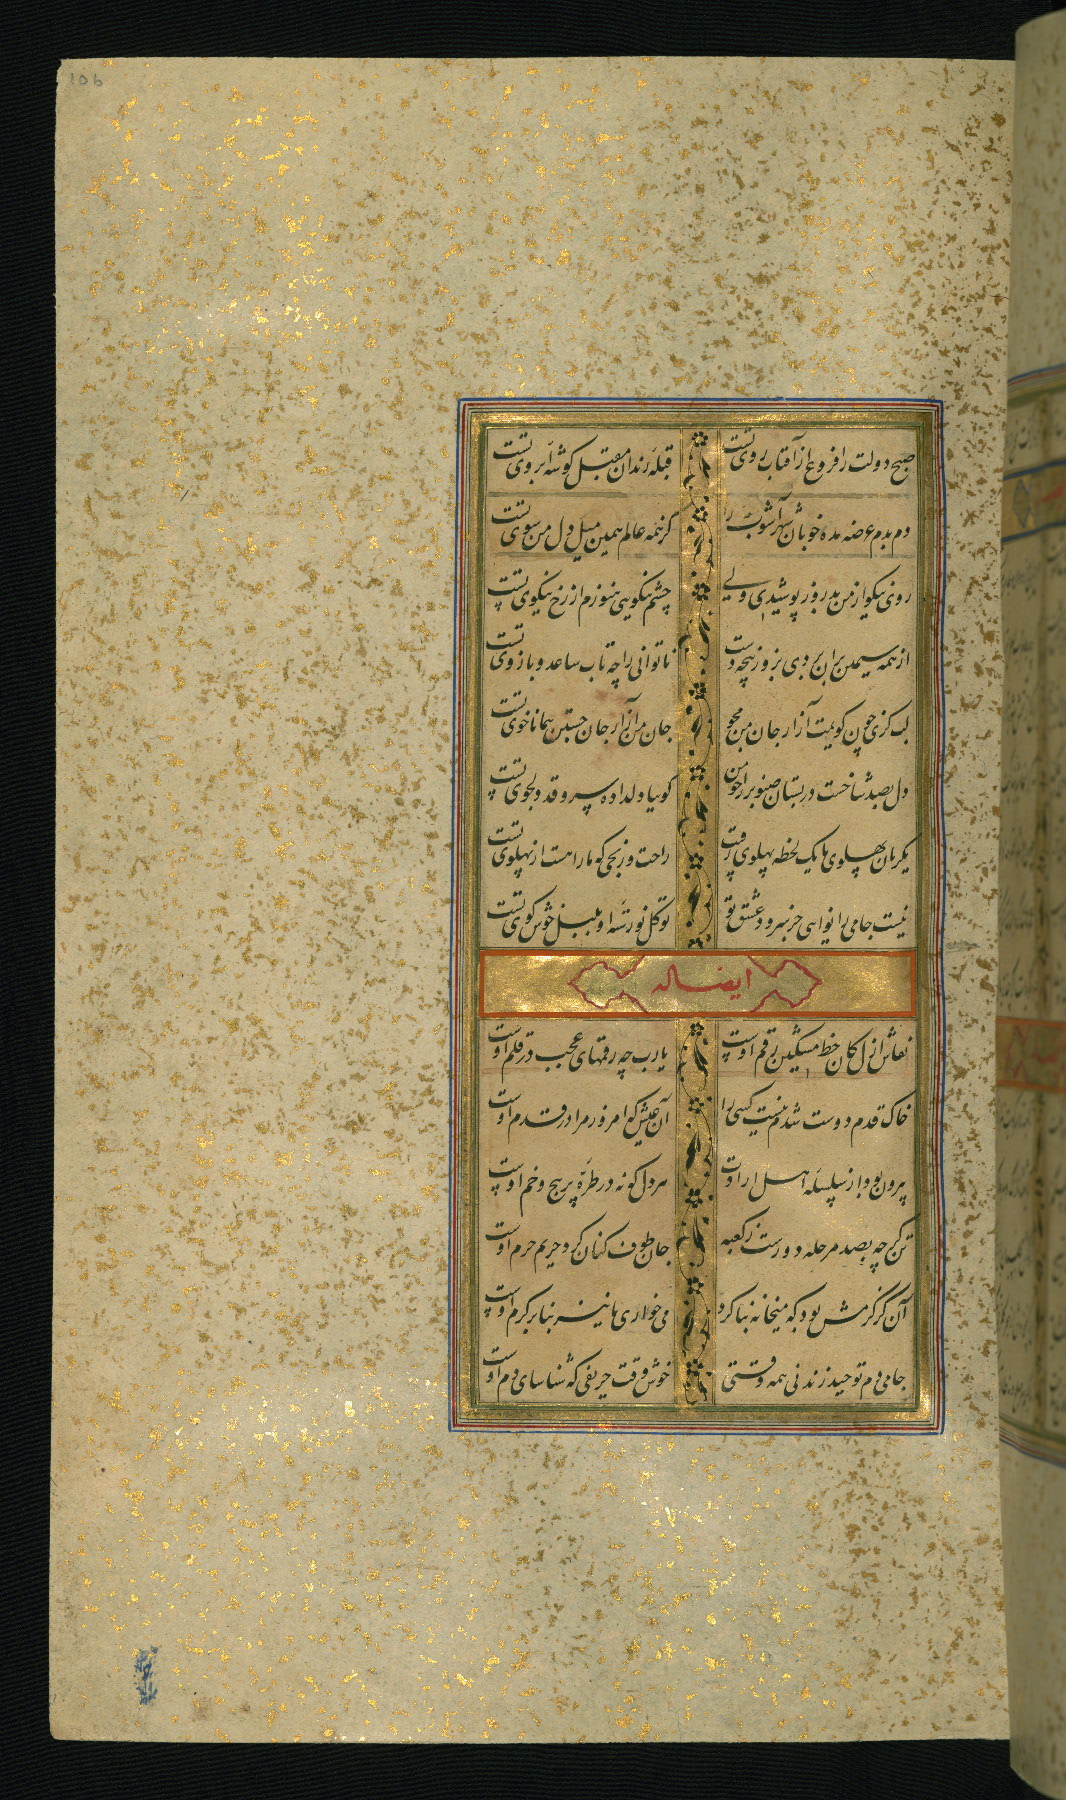 106
صبح دولت را فروغ از آفتاب روی تست قبلهٔ رندان مقبل گوشهٔ ابروی تست
دم بدم عرضه مده خوبان شهرآشوب را گر همه عالم همین میل دل من سوی تست
روی نیکو از من بدروز پوشیدی ولی چشم نیکویی هنوزم از رخ نیکوی تست
از همه سیمین بران بردی بزور پنجه دست ناتوانی را چه تاب ساعد و بازوی تست
لب گزی چون گویمت آزار جان من مجو جان من آزار جان جستن همانا خوی تست
دل بصد شاخست در بستان صنوبر را چو من گوییا دلداده سرو قد دلجوی تست
یکزمان پهلوی ما یک لحظه پهلوی رقیب راحت و رنجی که ما را هست از پهلوی تست
نیست جامی را نوایی جز سرود عشق تو تو گل نورسته او بلبل خوش گوی تست
ایضا له
نقاش ازل کان خط مشکین رقم اوست یارب چه رقمهای عجب در قلم اوست
خاک قدم دوست شدم نیست کسی را آن عیش که امروز مرا در قدم اوست
بیرون بود از سلسلهٔ اهل ارادت هر دل که نه در طرهٔ پر پیچ و خم اوست
تن گر چه بصد مرحله دورست ز کعبه جان طوف کنان گرد حریم حرم اوست
آن کز کرمش بود که میخانه بنا کرد می خواری ما نیز بنا بر کرم اوست
جامی دم توحید زند نی همه وقتی خوش وقت حریفی که شناسای دم اوست